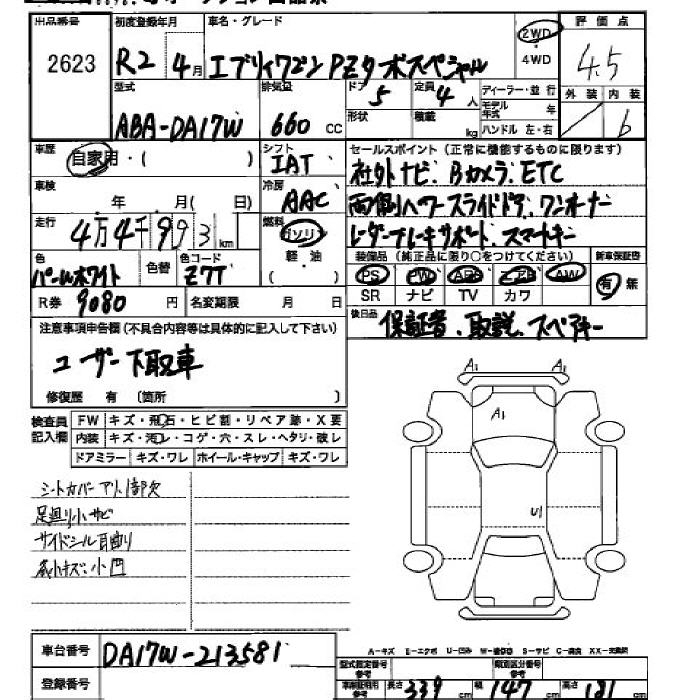 出品番号 初度登録年月 車名・グレード 2WD 評価点
2623 R2 4月 エブリィワゴン PZターボスペシャル 4WD 4.5
型式 排気量 ドア 定員 ディーラー・並行 外装 内装
ABA-DA17W 660 cc 5 4人 モデル年式 年 b
形状 積載 kg ハンドル 左・右
車歴 自家用・( ) シフト IAT セールスポイント(正常に機能するものに限ります)
車検 年 月( 日) 冷房 AAC 社外ナビ.Bカメラ.ETC
両側パワースライドドア.ワンオーナー
走行 4万4千993km 燃料 ガソリン レーダーブレーキサポート.スマートキー
軽油
装備品(純正品に限り○をつけてください) 新車保証書
色 パールホワイト 色替 色コード Z7T PS PW ABS エアB AW 有 無
SR ナビ TV カワ
R券 9080 円 名変期限 月 日
後日品 保証書.取説.スペアキー
注意事項申告欄(不具合内容等は具体的に記入して下さい)
ユーザー下取車
修復歴 有 (箇所 )
検査員記入欄 FW キズ・飛石・ヒビ割・リペア跡・X要
内装 キズ・汚レ・コゲ・穴・スレ・ヘタリ・破レ
ドアミラー キズ・ワレ ホイール・キャップ キズ・ワレ
A1 A1
A1
U1
シートカバーアリ.1部欠
足廻り小サビ
サイドシル曲り
小キズ.小凹
車台番号 DA17W-213581
A-キズ E-エクボ U-凹み W-補修跡 S-サビ C-腐食 XX-交換済
型式指定番号 参考 類別区分番号 参考
登録番号 長さ 339 cm 幅 147 cm 高さ 181 cm